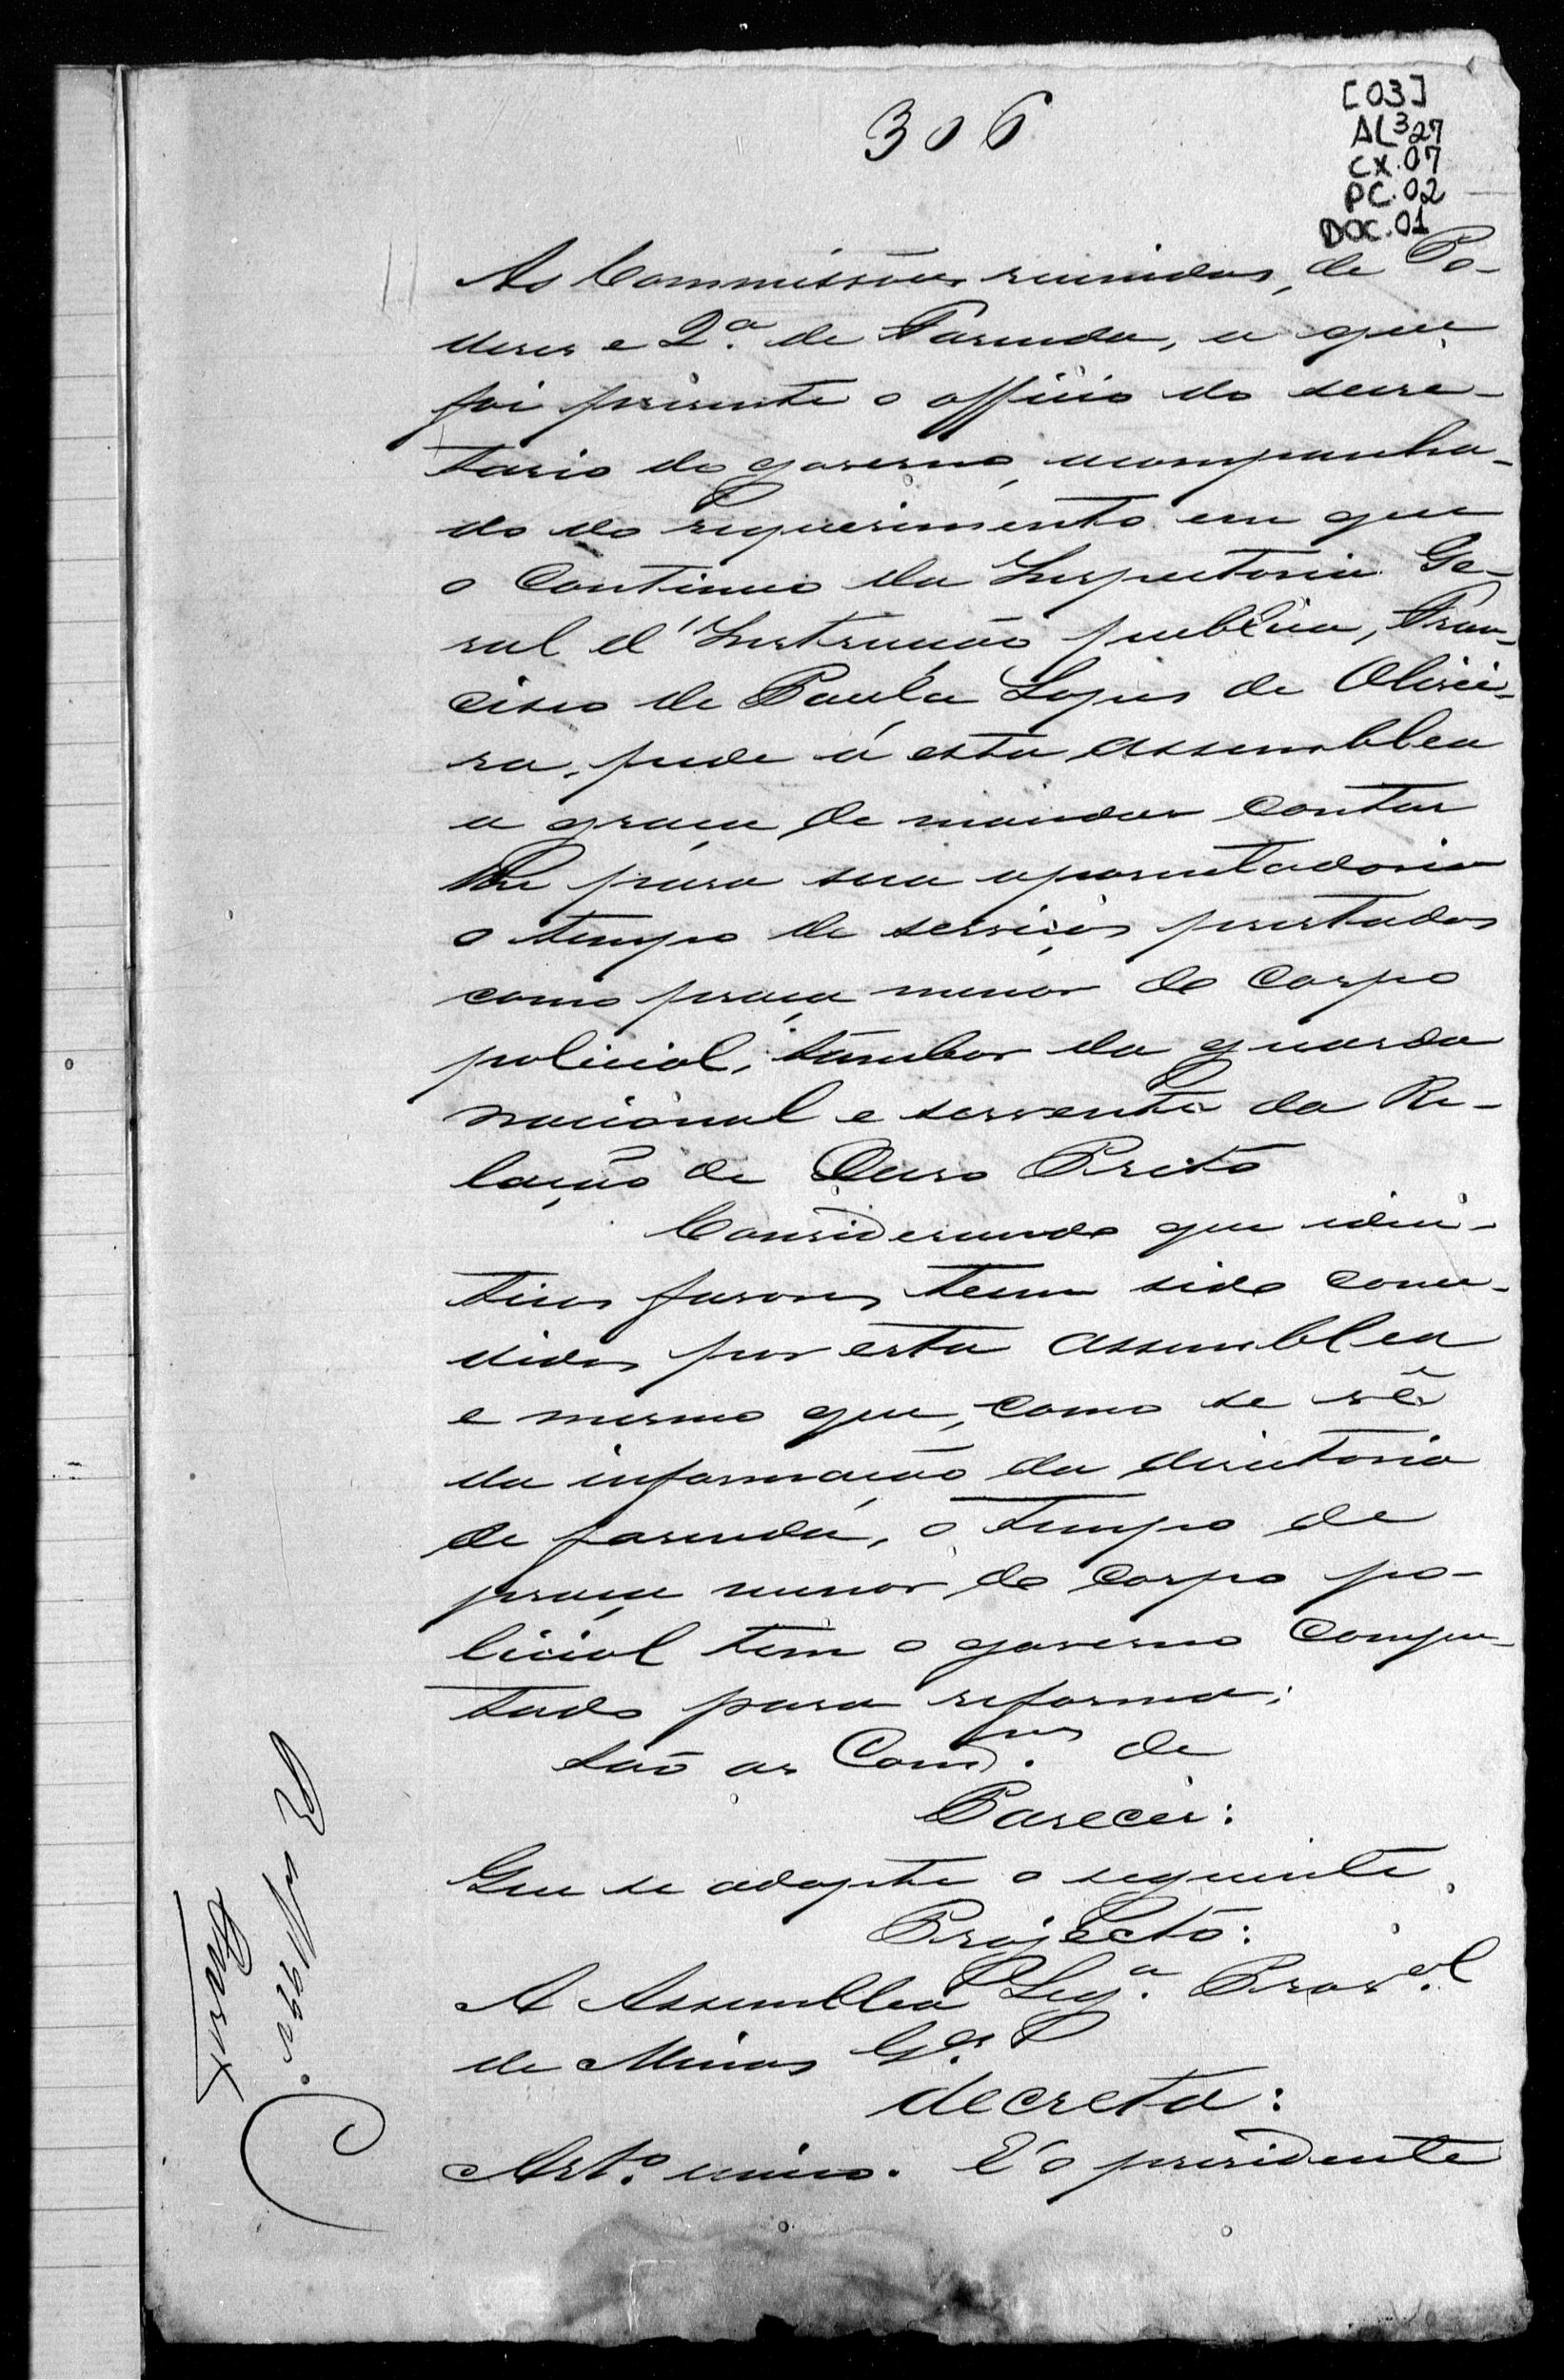 306
[03]
AL327
CX.07
PC.02
DOC.01
As Commissões reunidas, de Po-
deres e 2.ª de Fasenda, a que
foi presente o officio do secre-
tario do governo, acompanha-
do do requerimento em que
o Continuo da Inspectoria Ge-
ral d'Instrucção publica, Fran-
cisco de Paula Lopes de Olivei-
ra, pede á esta assemblea
a graça de mandar contar
lhe para sua aposentadoria
o tempo de serviços prestados
como praça menor do corpo
policial, tambor da guarda
nacional e servente da Re-
lação de Ouro Preto
Considerando que iden-
ticos favores tem sido conce-
didos por esta assemblea
e mesmo que, como se vê
da informação da directoria
de fasenda, o tempo de
praça menor do corpo po-
licial tem o governo compu-
tado para reforma;
são as Com.ões de
Parecer:
Que se adopte o seguinte
Projecto:
A Assemblea Leg.a Prov.al
de Minas G.es
decreta:
Art.o unico. É o presidente